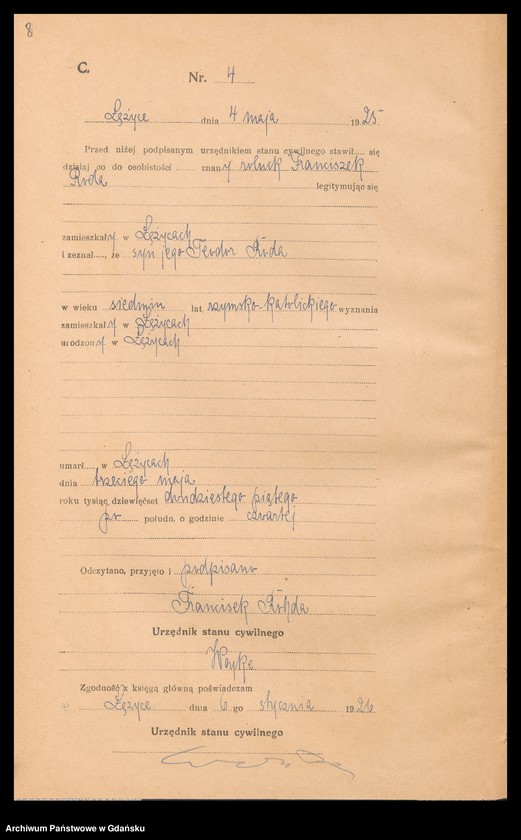 8
C.
Nr. 4
Łężyce dnia 4 maja 1925
Przed niżej podpisanym urzędnikiem stanu cywilnego stawił się
dzisiaj co do osobistości znany rolnik Franciszek
legitymując się
zamieszkały w Łężycach
i zeznał, że syn jego Teodor
w wieku siedmiu lat rzymsko-katolickiego wyznania
zamieszkały w Łężycach
urodzony w Łężycach
umarł w Łężycach
dnia trzeciego maja
roku tysiąc dziewięćset dwudziestego piątego
po połudn. o godzinie czwartej
Odczytano, przyjęto i podpisano
Francisek
Urzędnik stanu cywilnego
Woyke
Zgodność z księgą główną poświadczam
Łężyce dnia 6 go stycznia 1926
Urzędnik stanu cywilnego
Archiwum Państwowe w Gdańsku